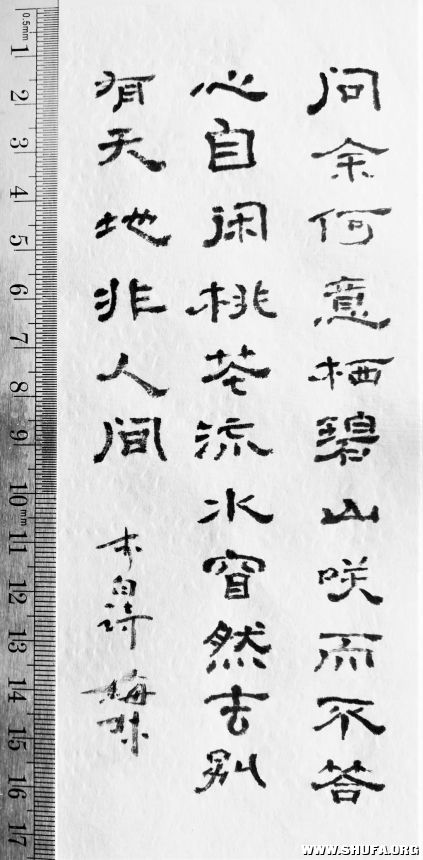 问余何意栖碧山咲而不答
心自闲桃花流水窅然去别
有天地非人间
李白诗 梅林
0.5mm 1 2 3 4 5 6 7 8 9 10 mm 11 12 13 14 15 16 17
WWW.SHUFA.ORG